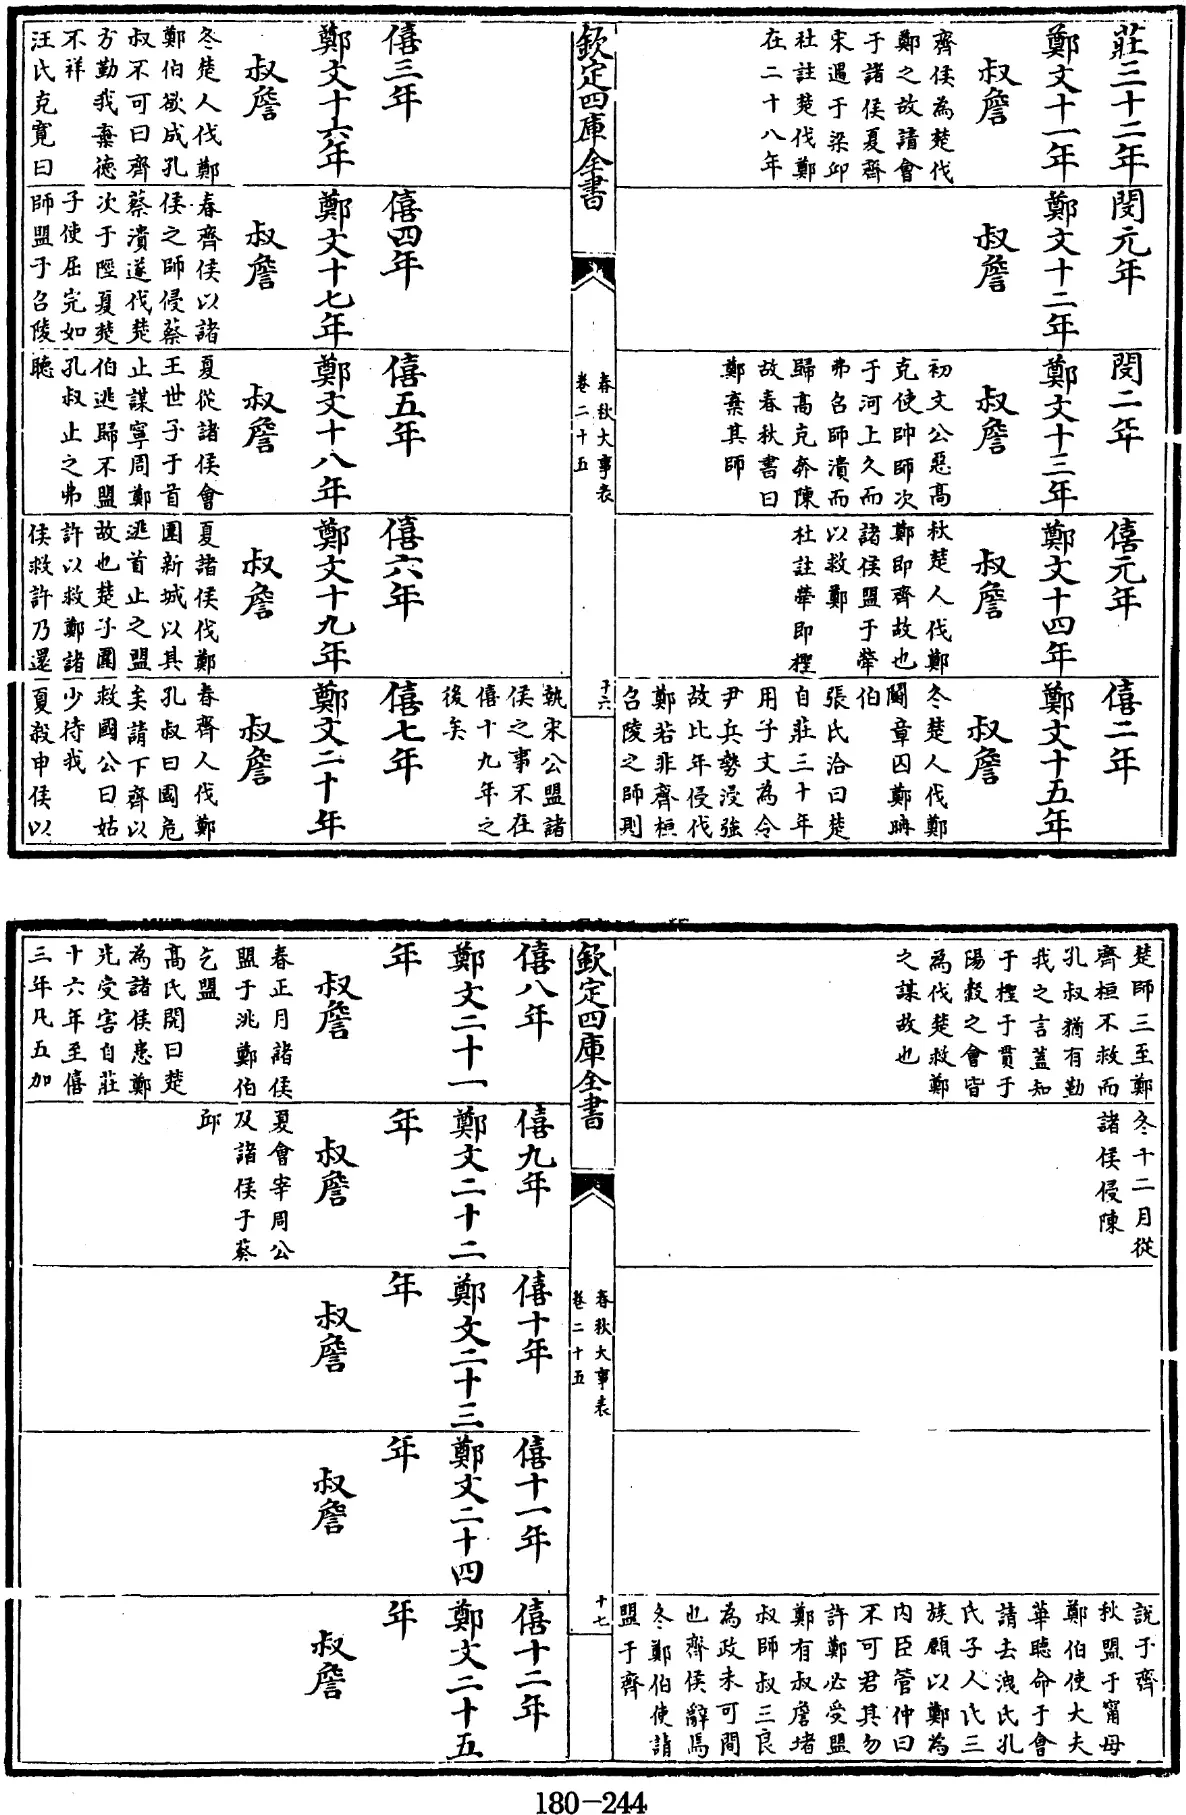 莊三十二年
鄭文十一年
叔詹
齊侯為楚伐
鄭之故請會
于諸侯夏齊
宋遇于梁邱
杜註楚伐鄭
在二十八年
閔元年
鄭文十二年
叔詹
閔二年
鄭文十三年
叔詹
初文公惡高
克使帥師次
于河上久而
弗召師潰而
歸高克奔陳
故春秋書曰
鄭棄其師
僖元年
鄭文十四年
叔詹
秋楚人伐鄭
鄭即齊故也
諸侯盟于犖
以救鄭
杜註犖即檉
僖二年
鄭文十五年
叔詹
冬楚人伐鄭
鬬章囚鄭聃
伯
張氏洽曰楚
自莊三十年
用子文為令
尹兵勢浸強
故比年侵伐
鄭若非齊桓
召陵之師則
欽定四庫全書
春秋大事表
卷二十五
十六
僖三年
鄭文十六年
叔詹
冬楚人伐鄭
鄭伯欲成孔
叔不可曰齊
方勤我棄德
不祥
汪氏克寛曰
僖四年
鄭文十七年
叔詹
春齊侯以諸
侯之師侵蔡
蔡潰遂伐楚
次于陘夏楚
子使屈完如
師盟于召陵
僖五年
鄭文十八年
叔詹
夏從諸侯會
王世子于首
止謀寧周鄭
伯逃歸不盟
孔叔止之弗
聽
僖六年
鄭文十九年
叔詹
夏諸侯伐鄭
圍新城以其
逃首止之盟
故也楚子圍
許以救鄭諸
侯救許乃還
執宋公盟諸
侯之事不在
僖十九年之
後矣
僖七年
鄭文二十年
叔詹
春齊人伐鄭
孔叔曰國危
矣請下齊以
救國公曰姑
少待我
夏殺申侯以
楚師三至鄭
齊桓不救而
孔叔猶有勤
我之言葢知
于檉于貫于
陽穀之會皆
為伐楚救鄭
之謀故也
冬十二月從
諸侯侵陳
說于齊
秋盟于甯母
鄭伯使大夫
華聽命于會
請去洩氏孔
氏子人氏三
族願以鄭為
内臣管仲曰
不可君其勿
許鄭必受盟
鄭有叔詹堵
叔師叔三良
為政未可間
也齊侯辭焉
冬鄭伯使請
盟于齊
欽定四庫全書
春秋大事表
卷二十五
十七
僖八年
鄭文二十一
年
叔詹
春正月諸侯
盟于洮鄭伯
乞盟
高氏閌曰楚
為諸侯患鄭
先受害自莊
十六年至僖
三年凡五加
僖九年
鄭文二十二
年
叔詹
夏會宰周公
及諸侯于葵
邱
僖十年
鄭文二十三
年
叔詹
僖十一年
鄭文二十四
年
叔詹
僖十二年
鄭文二十五
年
叔詹
180-244